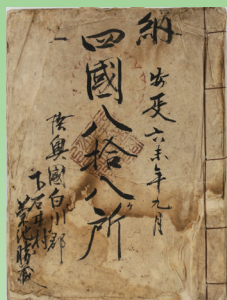 納
安政六未年九月
四國八拾八ヶ所
一
陸奥國白川郡
下石井村
菊池勝